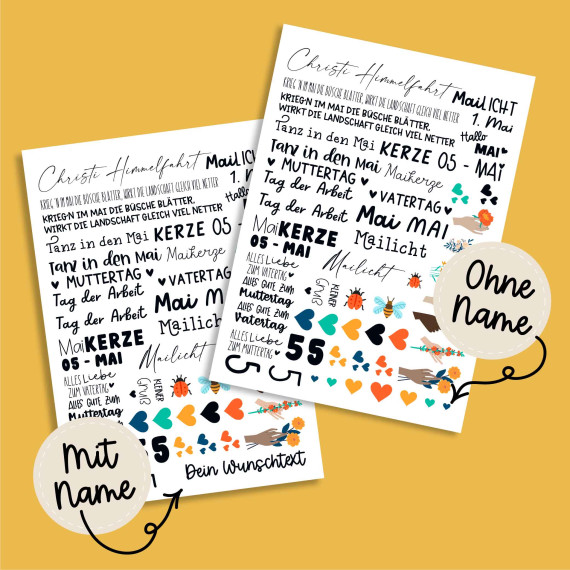 Christi Himmelfahrt
MaiLICHT
KRIEG'N IM MAI DIE BÜSCHE BLÄTTER, WIRKT DIE LANDSCHAFT GLEICH VIEL NETTER
1. Mai
KRIEG'N IM MAI DIE BÜSCHE BLÄTTER,
WIRKT DIE LANDSCHAFT GLEICH VIEL NETTER
Hallo
MAI
Tanz in den Mai KERZE 05 - MAI
Tanz in den Mai Maikerze
MUTTERTAG
Tag der Arbeit
VATERTAG
Tag der Arbeit
Mai MAI
MaiKERZE
Mailicht
05 - MAI
Mailicht
ALLES Liebe
ZUM VATERTAG
Alles Gute zum
Muttertag
KLEINER
Gruß
Alles Gute zum
Vatertag
ALLES Liebe
ZUM MUTTERTAG
55
5
5
Ohne
Name
Christi Himmelfahrt
MaiLICHT
KRIEG'N IM MAI DIE BÜSCHE BLÄTTER, WIRKT DIE LANDSCHAFT GLEICH VIEL NETTER
1.
KRIEG'N IM MAI DIE BÜSCHE BLÄTTER,
WIRKT DIE LANDSCHAFT GLEICH VIEL NETTER
Hallo
Tanz in den Mai KERZE 05 -
Tanz in den Mai Maikerze
MUTTERTAG
Tag der Arbeit
VATERTAG
Tag der Arbeit
Mai MAI
MaiKERZE
Mailicht
05 - MAI
Mailicht
ALLES Liebe
ZUM VATERTAG
Alles Gute zum
Muttertag
KLEINER
Gruß
5
55
Dein Wunschtext
Mit
Name